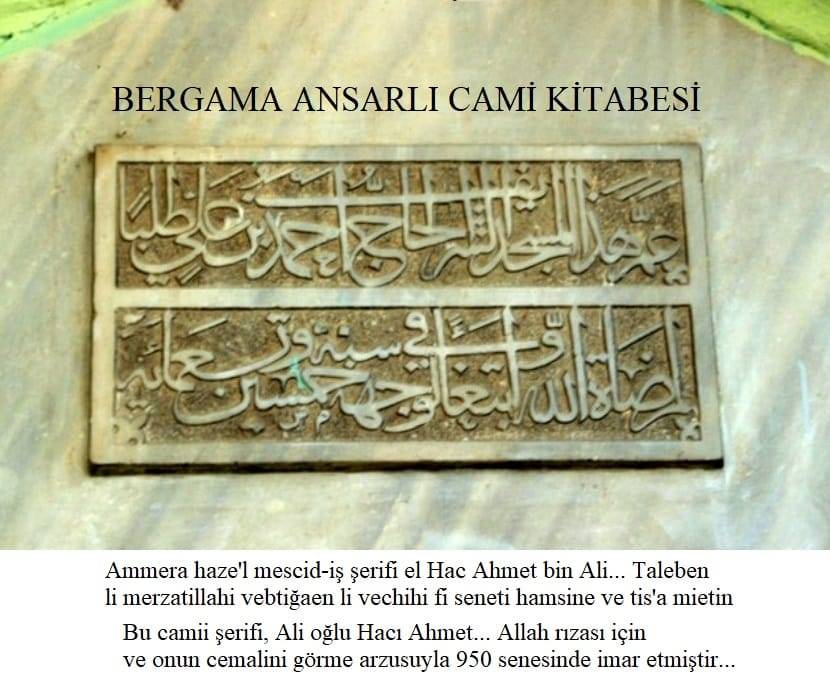 BERGAMA ANSARLI CAMİ KİTABESİ
عمّر هذا المسجد الشريف الحاج احمد بن علي طلبًا
لمرضاة الله وابتغاءً لوجهه في سنة خمسين وتسعمائة
Ammera haze'l mescid-iş şerifi el Hac Ahmet bin Ali... Taleben
li merzatillahi vebtiğaen li vechihi fî seneti hamsine ve tis'a mietin
Bu camii şerifi, Ali oğlu Hacı Ahmet... Allah rızası için
ve onun cemalini görme arzusuyla 950 senesinde imar etmiştir...